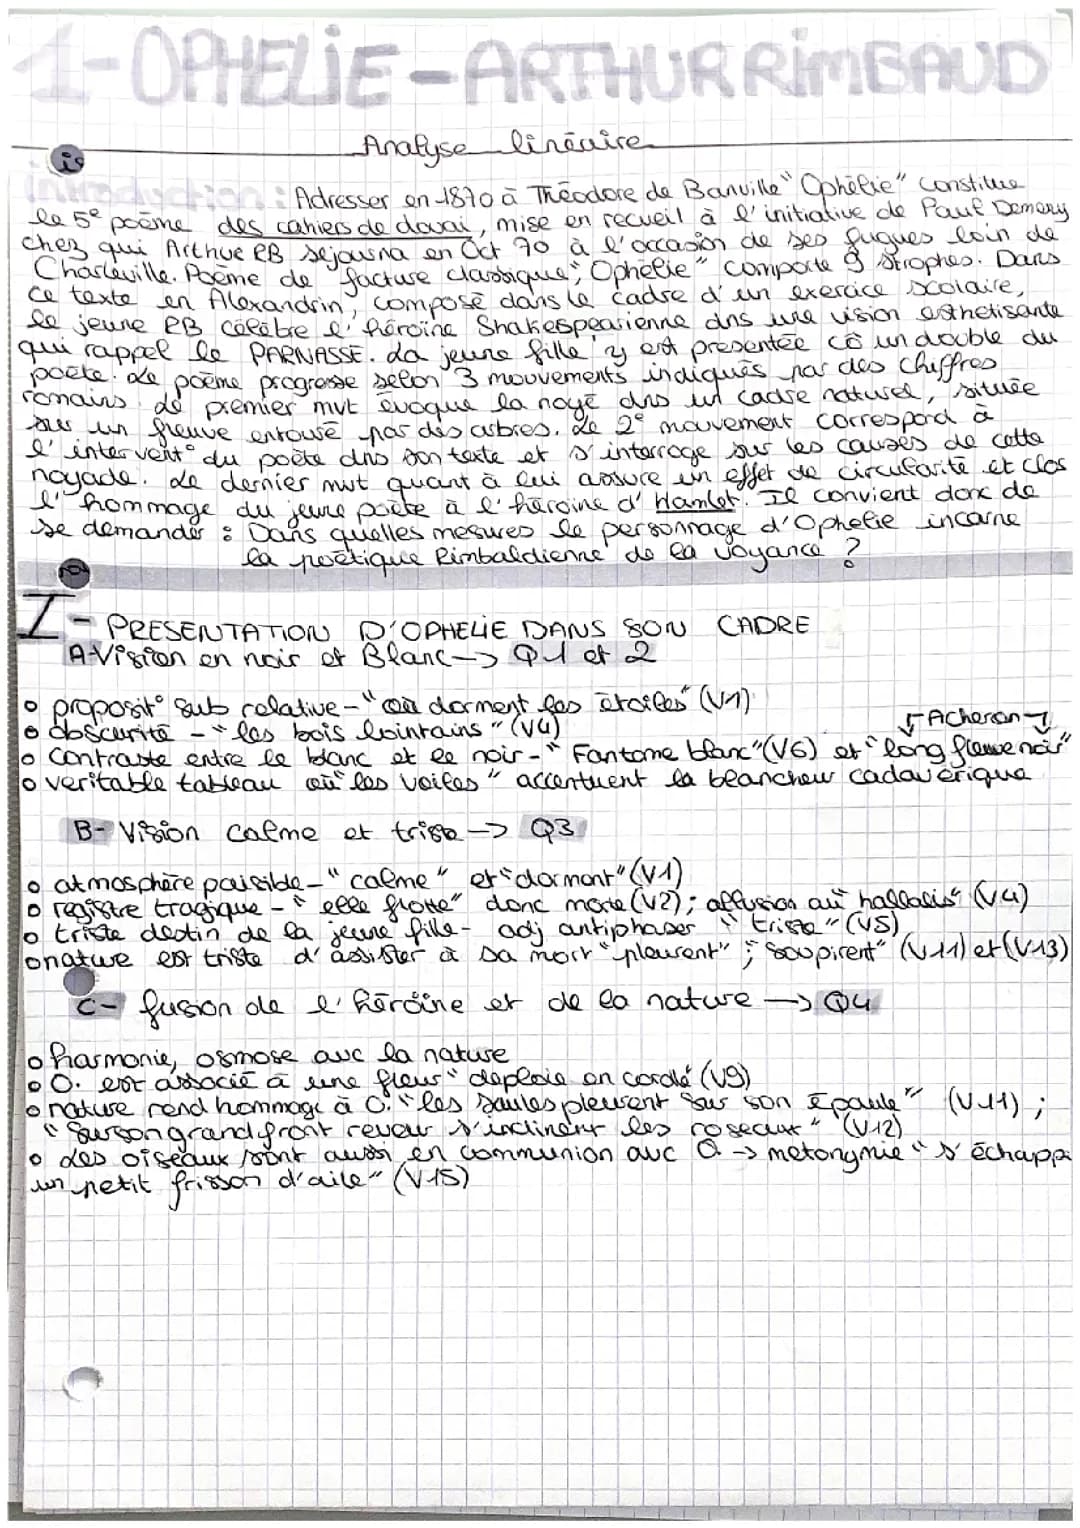 1-OPHELIE-ARTHUR RIMBAUD
Analyse linéaire
introduction : Adresser en 1870 à Théodore de Banville "Ophélie" constitue
le 5e poème des cahiers de douai, mise en recueil à l'initiative de Paul Demeny
chez qui Arthur RB séjourna en Oct 70 à l'occasion de ses fugues loin de
Charleville. Poème de facture classique, "Ophélie" comporte 9 strophes. Dans
ce texte en Alexandrin, composé dans le cadre d'un exercice scolaire,
le jeune RB célèbre l'héroïne Shakespearienne dns une vision esthetisante
qui rappel le PARNASSE. La jeune fille y est presentée cô un double du
poète. Le poème progresse selon 3 mouvements indiqués par des chiffres
romains. Le premier mvt évoque la noyé dns un cadre naturel, située
sur un fleuve entouré par des arbres. Le 2e mouvement correspond à
l'intervent° du poète dns son texte et s'interroge sur les causes de cette
noyade. Le dernier mvt quant à lui assure un effet de circularité et clos
l'hommage du jeune poète à l'héroïne d'Hamlet. Il convient donc de
se demander : Dans quelles mesures le personnage d'Ophelie incarne
la poétique Rimbaldienne de la voyance ?
I- PRESENTATION D'OPHELIE DANS SON CADRE
A-Vision en noir et Blanc -> Q1 et 2
o proposit° sub relative - "où dorment les étoiles" (V1)
o obscurité - "les bois lointains" (V4)
Acheron
o contraste entre le blanc et le noir - "Fantome blanc" (V6) et "long fleuve noir"
o veritable tableau où "les voiles" accentuent la blancheur cadavérique
B- Vision calme et triste -> Q3
o atmosphère paisible - "calme" et "dorment" (V1)
o registre tragique - "elle flotte" donc morte (V2) ; allusion aux "hallalis" (V4)
o triste destin de la jeune fille - adj antiphaser "triste" (V5)
o nature est triste d'assister à sa mort "pleurent" ; "soupirent" (V11) et (V13)
C- fusion de l'héroïne et de la nature -> Q4
o harmonie, osmose avc la nature
o O. est associé à une fleur "deploie en corolle" (V9)
o nature rend hommage à O. "les saules pleurent sur son épaule" (V11) ;
"Sur son grand front reveur s'inclinent les roseaux" (V12)
o Les oiseaux sont aussi en communion avc O. -> metonymie "s'échappe
un petit frisson d'aile" (V15)